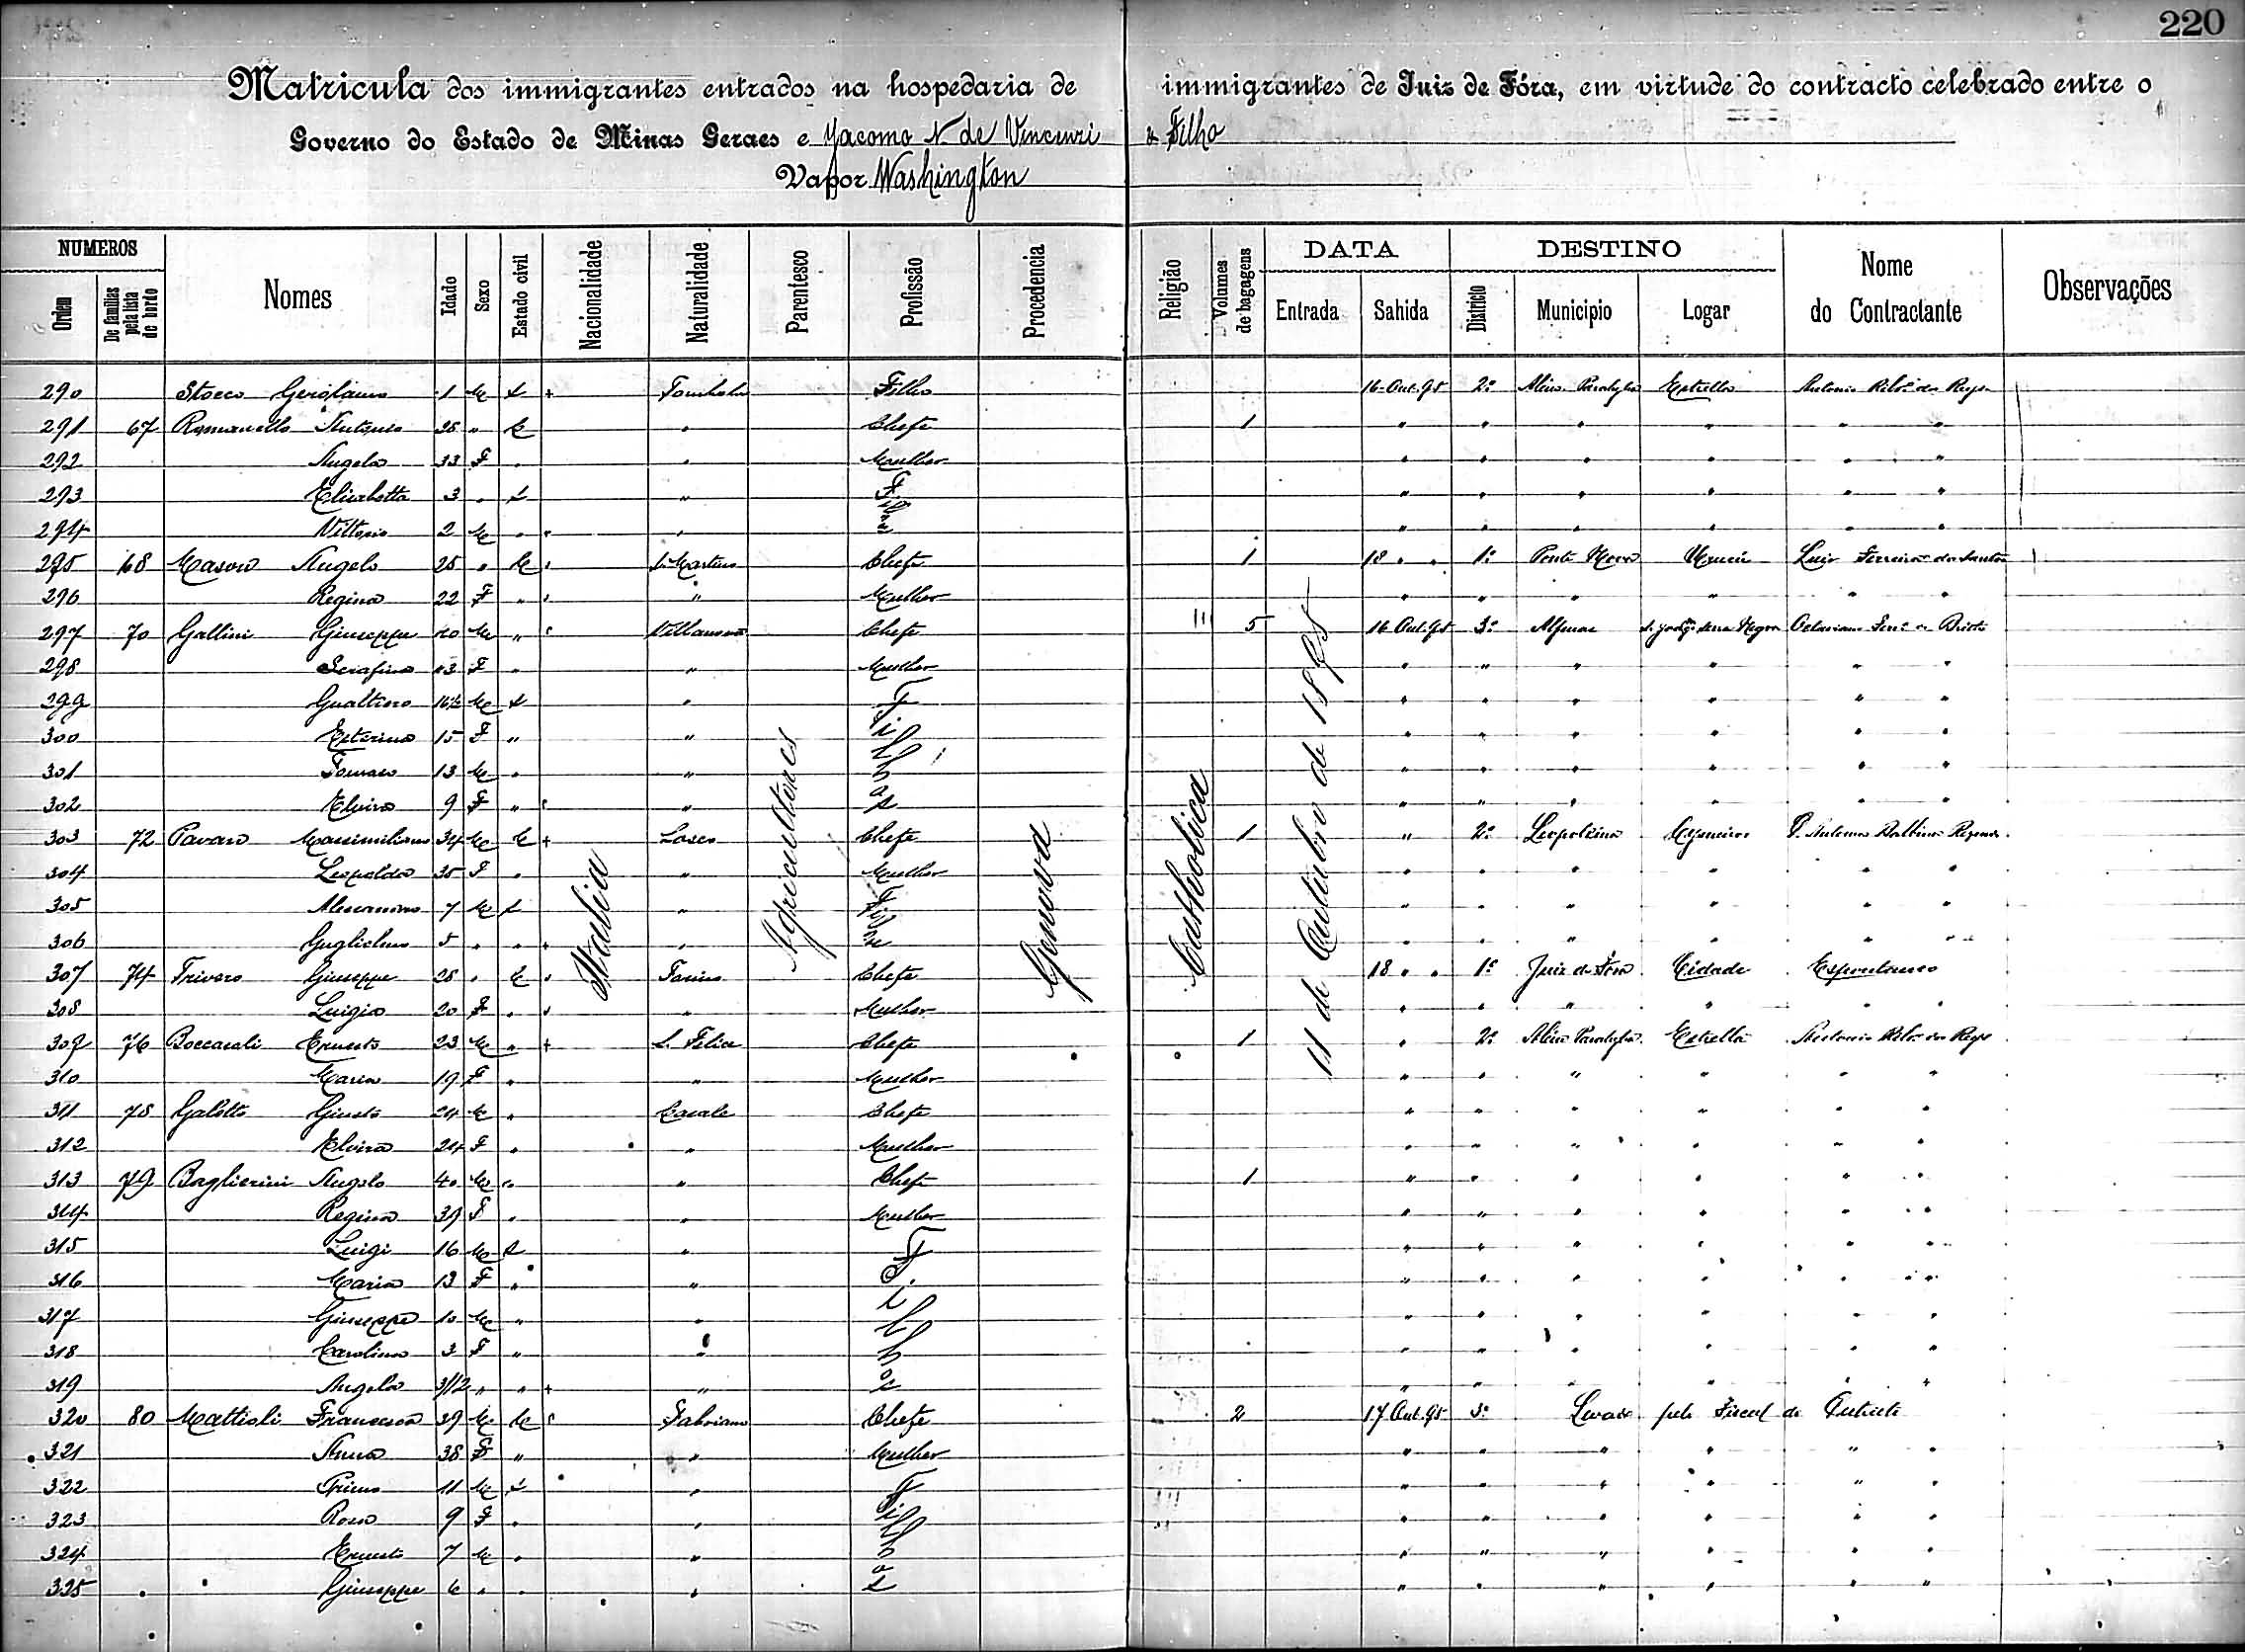 220
Matricula dos immigrantes entrados na hospedaria de immigrantes de Juiz de Fóra, em virtude do contracto celebrado entre o
Governo do Estado de Minas Geraes e Jacomo N. de Vincenzi & Filho
Vapor Washington
NUMEROS DATA DESTINO
Ordem De familias pela lista de bordo Nomes Idade Sexo Estado civil Nacionalidade Naturalidade Parentesco Profissão Procedencia Religião Volumes de bagagens Entrada Sahida Districto Municipio Logar Nome do Contractante Observações
Italia Agricultores Genova Catholica 11 de Outubro de 1895
290 Stocco Gerolamo 1 M S Tombolo Filho 16-Out.95 2º Além Parahyba Estrella Antonio
291 67 Romanello Antonio " C " Chefe 1 " " " " " "
292 Angela 33 F " " Mulher " " " " " "
293 Elisabetta 3 " S " F " " " " " "
294 Vittorio 2 M " " il " " " " " "
295 68 Mason Angelo " C S. Martino Chefe 1 18 " " 1º Ponte Nova Luiz Ferreira dos Santos
296 Regina 22 F " " Mulher " " " " " "
297 70 Gallini Giuseppe M " Villanova Chefe 5 16 Out.95 3º Alfenas
298 Serafina F " " Mulher " " " " " "
299 Gualtiero M S " F " " " " " "
300 Esterina 15 F " " i " " " " " "
301 13 M " " lh " " " " " "
302 Elvira 9 F " " os " " " " " "
303 72 Pavan Massimiliano 34 M C Chefe 1 " 2º Leopoldina
304 Leopolda 35 F " " Mulher " " " " " "
305 7 M S " Fi " " " " " "
306 Guglielmo 5 " " " " " " " " "
307 74 Trivero Giuseppe " C Torino Chefe 18 " " 1º Juiz de Fóra Cidade Espontaneo
308 Luigia 20 F " " Mulher " " " " " "
309 76 Boccacali Ernesto 23 M " S. Felice Chefe 1 " 2º Além Parahyba Estrella Antonio
310 Maria 19 F " " Mulher " " " " " "
311 78 Galetto Giusto 24 M " Casale Chefe " " " " " "
312 Elvira 24 F " " Mulher " " " " " "
313 79 Baglierini Angelo 40 M " " Chefe 1 " " " " " "
314 Regina 39 F " " Mulher " " " " " "
315 Luigi 16 M S " F " " " " " "
316 Maria 13 F " " " " " " " "
317 Giuseppe 10 M " " i " " " " " "
318 Carolina 3 F " " lh " " " " " "
319 Angela " " " os " " " " " "
320 80 Mattioli Francesco 39 M C Fabriano Chefe 2 17 Out.95 3º pelo Fiscal do
321 Anna 38 F " " Mulher " " " " " "
322 Primo 11 M S " F " " " " " "
323 Rosa 9 F " " il " " " " " "
324 Ernesto 7 M " " h " " " " " "
325 Giuseppe " " " os " " " " "